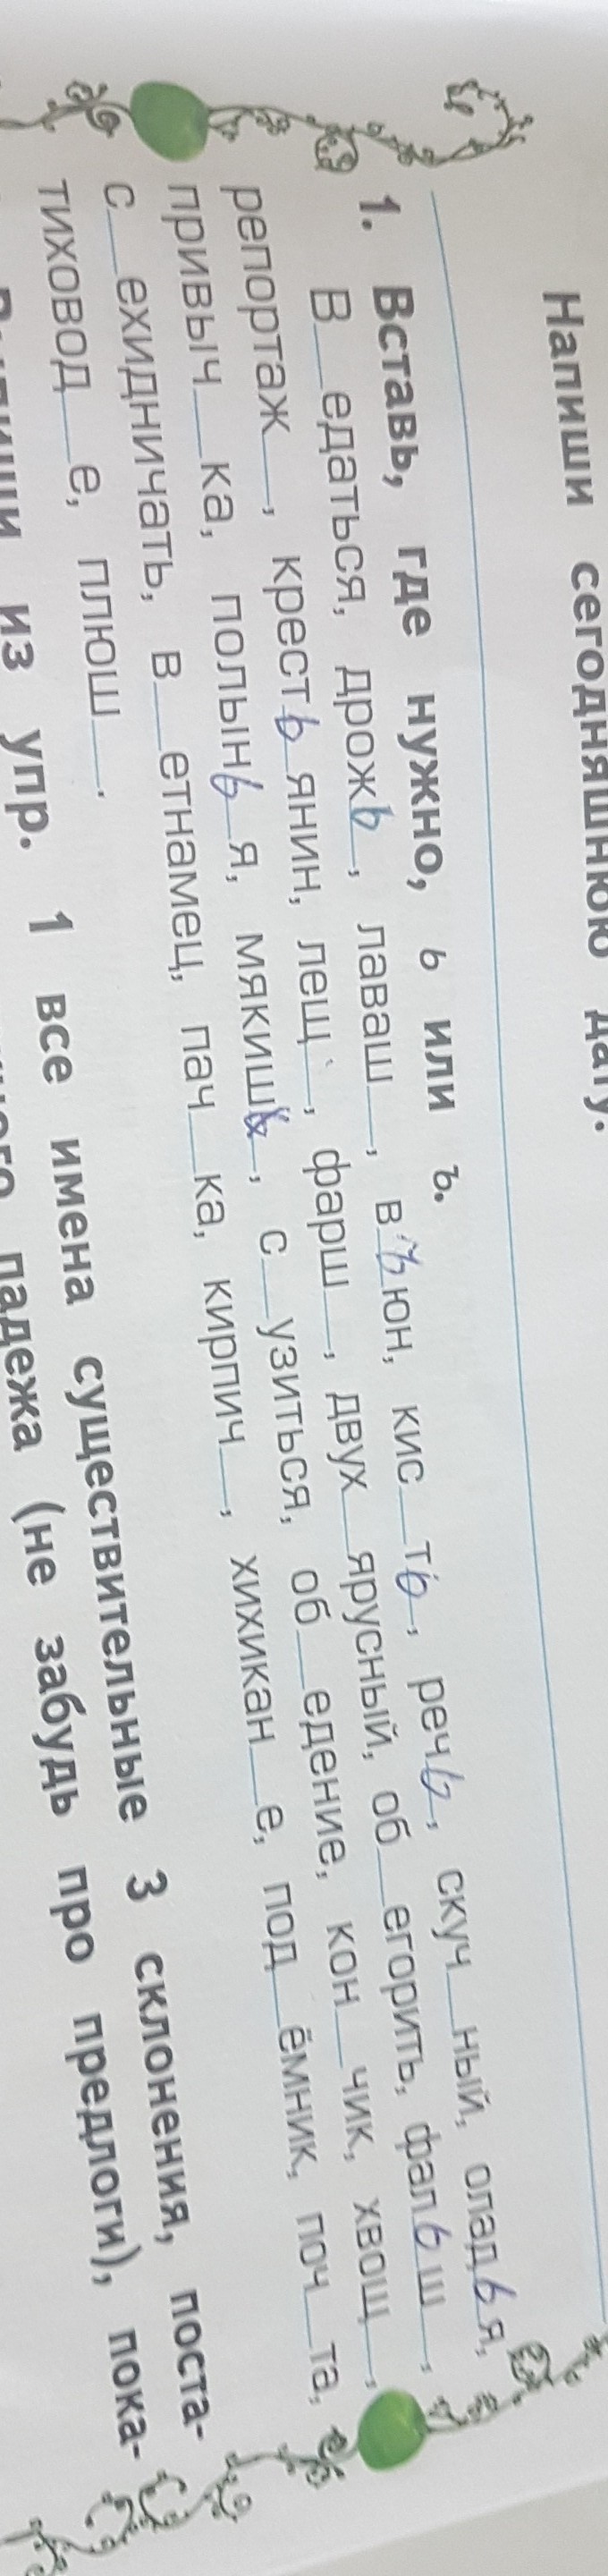 Напиши сегодняшнюю дату.
1. Вставь, где нужно, ь или ъ.
В__едаться, дрожь, лаваш__, вьюн, кис__ть, речь, скуч__ный, оладья,
репортаж__, крестьянин, лещ__, фарш__, двух__ярусный, об__егорить, фальш__,
привыч__ка, полынья, мякиш__, с__узиться, об__едение, кон__чик, хвощ__,
с__ехидничать, в__етнамец, пач__ка, кирпич__, хихикан__е, под__ёмник, поч__та,
тиховод__е, плюш__.
из упр. 1 все имена существительные 3 склонения, поста-
падежа (не забудь про предлоги), пока-